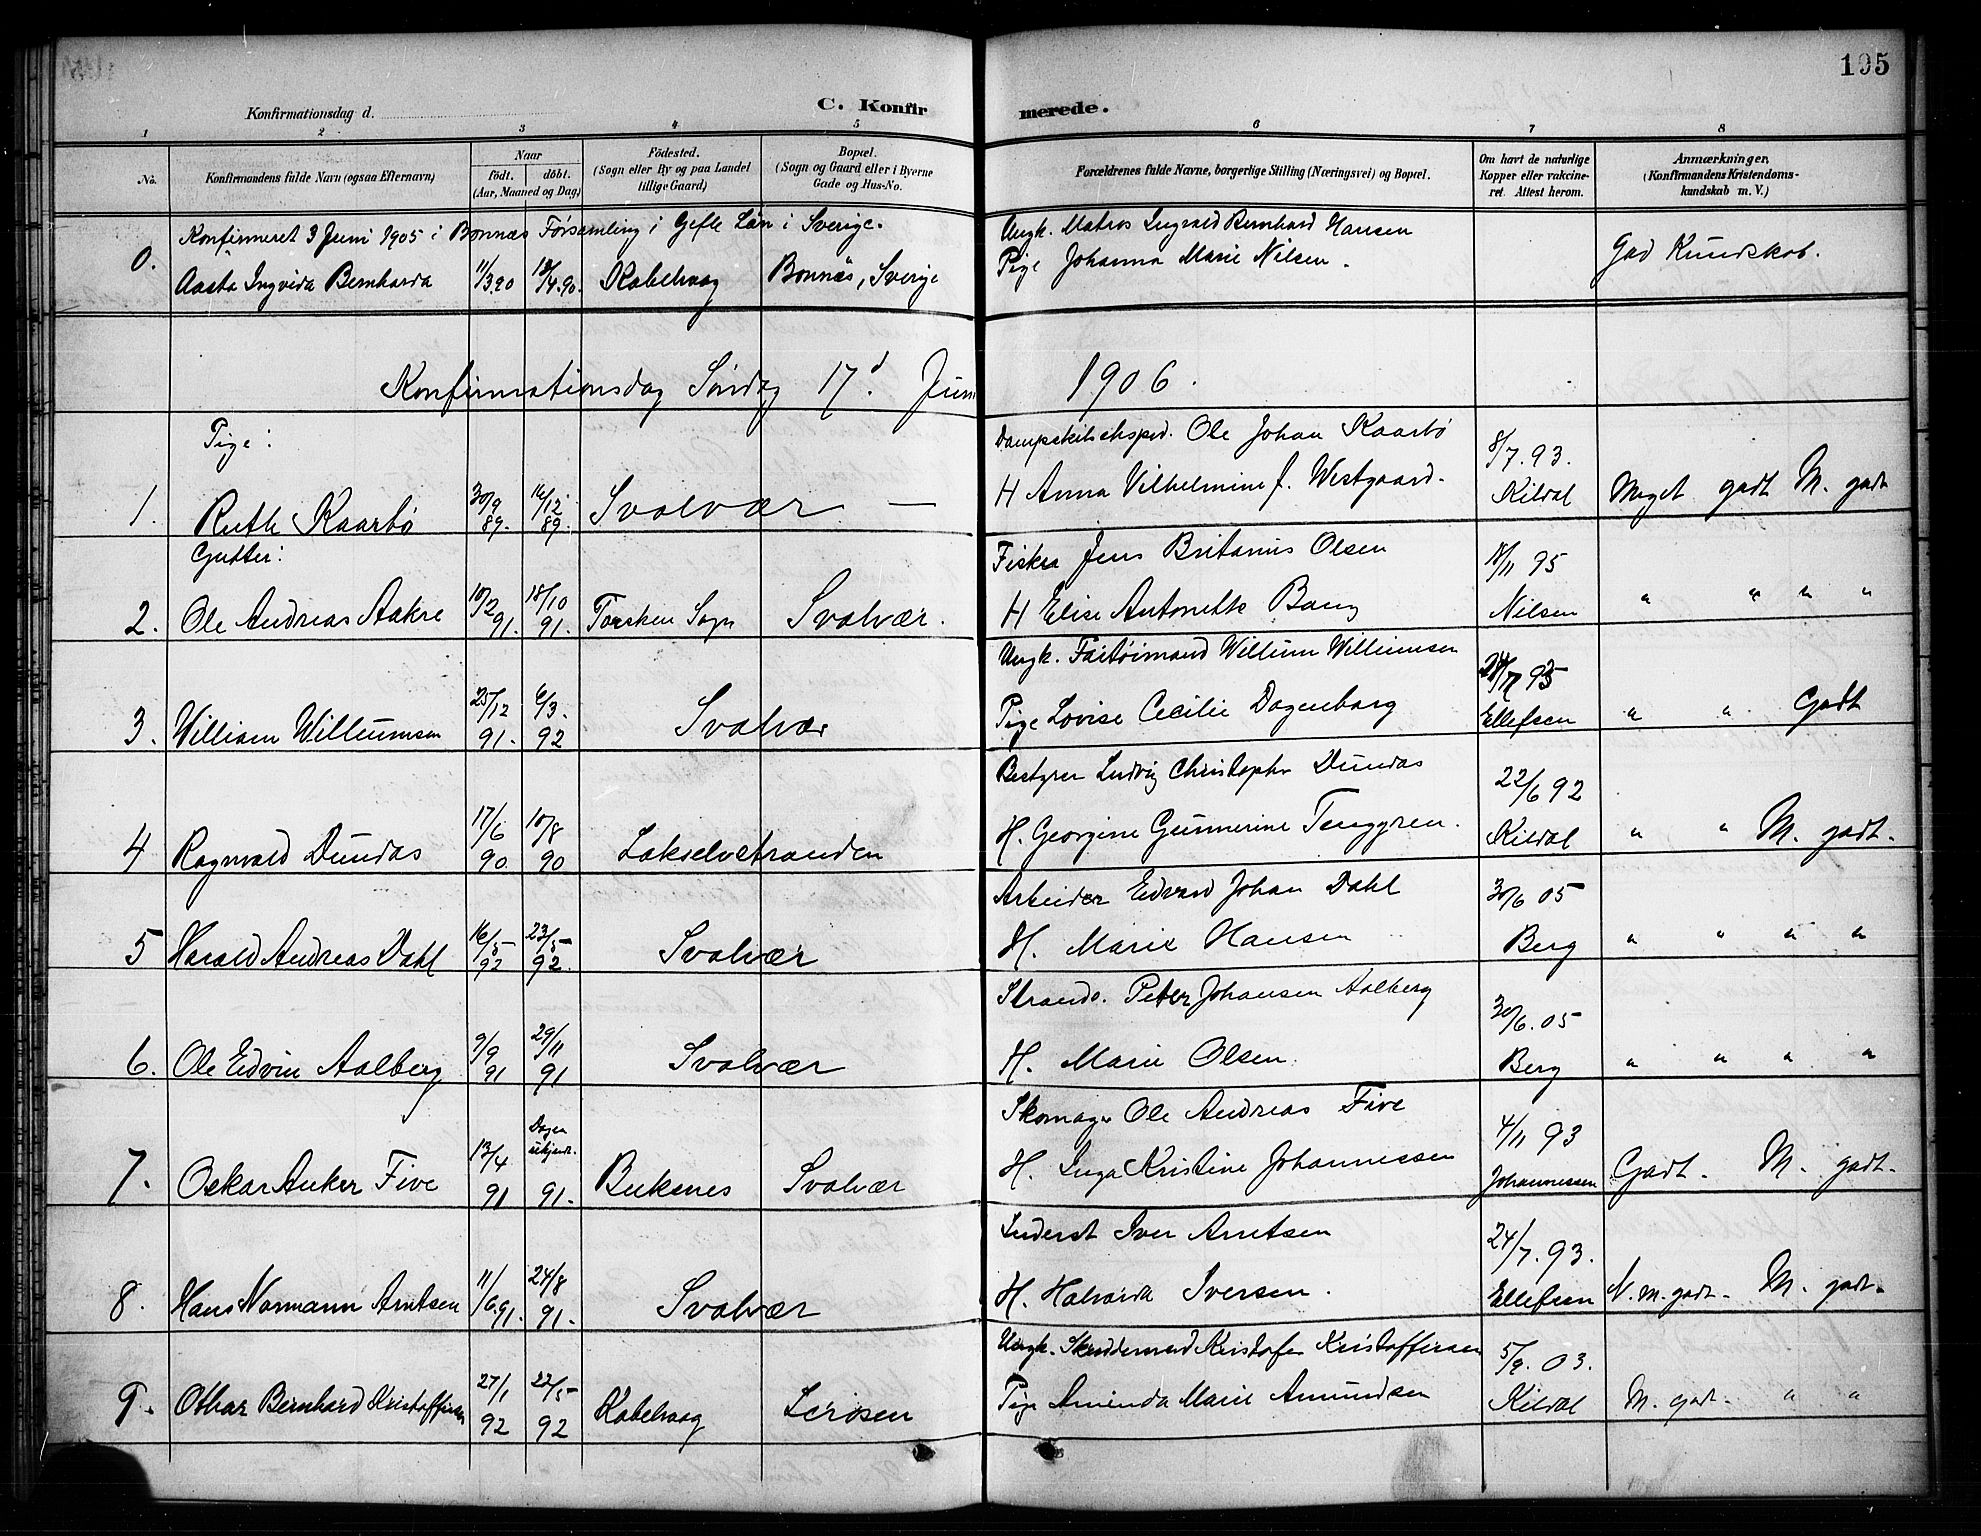 195
Konfirmationsdag d.
C. Konfirmerede.
1 2 3 4 5 6 7 8
No.
Konfirmandens fulde Navn (ogsaa Efternavn)
Naar
födt. döbt.
(Aar, Maaned og Dag)
Födested.
(Sogn eller By og paa Landet
tillige Gaard)
Bopæl.
(Sogn og Gaard eller i Byerne
Gade og Hus-No.
Forældrenes fulde Navne, borgerlige Stilling (Næringsvei) og Bopæl.
Om havt de naturlige
Kopper eller vakcine-
ret. Attest herom.
Anmærkninger,
(Konfirmandens Kristendoms-
kundskab m. V.)
Konfirmeret 3 Juni 1905 i Bonnäs Församling i Gefle Län i Sverige.
Ungk. Matros Ingvald Bernhard Hansen
0. Aasta Ingvida Bernharda 11/3 90 Kabelvaag Bonnäs, Sverige
Pige Johanna Marie Nilsen. God Kundskab.
Konfirmationsdag Söndag 17d. Juni 1906.
Pige:
Dampskibseksped. Ole Johan Kaarbö 8/7. 93.
1. Ruth Kaarbö 30/9 89. 16/12 89. Svolvær —
H Anna Vilhelmine f. Westgaard. Kildal Meget godt M. godt
Gutter:
Fisker Jens Britanius Olsen 18/11 95
2. Ole Andreas Aakre 10/2 91. 18/10 91. Torsken Sogn Svolvær.
H Elise Antonette Bang Nilsen " " " "
Ungk. Fartöimand Willium Williumsen 93
3. William Williumsen 25/12 91. 6/3. 92 Svolvær
Pige Lovise Cecilie Dagenborg Ellefsen " " Godt
Bestyrer Ludvig Christopher Dundas 22/6 92
4 Ragnvald Dundas 17/6 90. 10/8 90 Lakselvstranden
H. Georgine Gunnerine Tenggren. Kildal " " M. godt.
Arbeider Edvard Johan Dahl 30/6 05
5 Harald Andreas Dahl 16/5 92 23/5 92. Svolvær
H. Marie Hansen Berg " " " "
Strands. Peter Johansen Aalberg 30/6. 05
6. Ole Edvin Aalberg 9/9 91 29/11 91 Svolvær
H. Marie Olsen. Berg " " " "
Skomager Ole Andreas Five 4/11 93
7. Oskar Anker Five 13/4 91 Dagen ukjendt. 91. Buksnes Svolvær
H. Inga Kristine Johannessen Johannessen Godt. M. godt.
Inderst Iver Arntsen 24/7. 93.
8. Hans Normann Arntsen 11/6. 91. 24/8 91. Svolvær
H. Halvarda Iversen. Ellefsen N. m. godt. M. godt.
Ungk. Skræddersvend Kristofer Kristoffersen 5/9. 03.
9. Othar Bernhard Kristoffersen 27/1 92 22/5 92 Kabelvaag Lerosen
Pige Amanda Marie Amundsen Kildal M. godt. " "